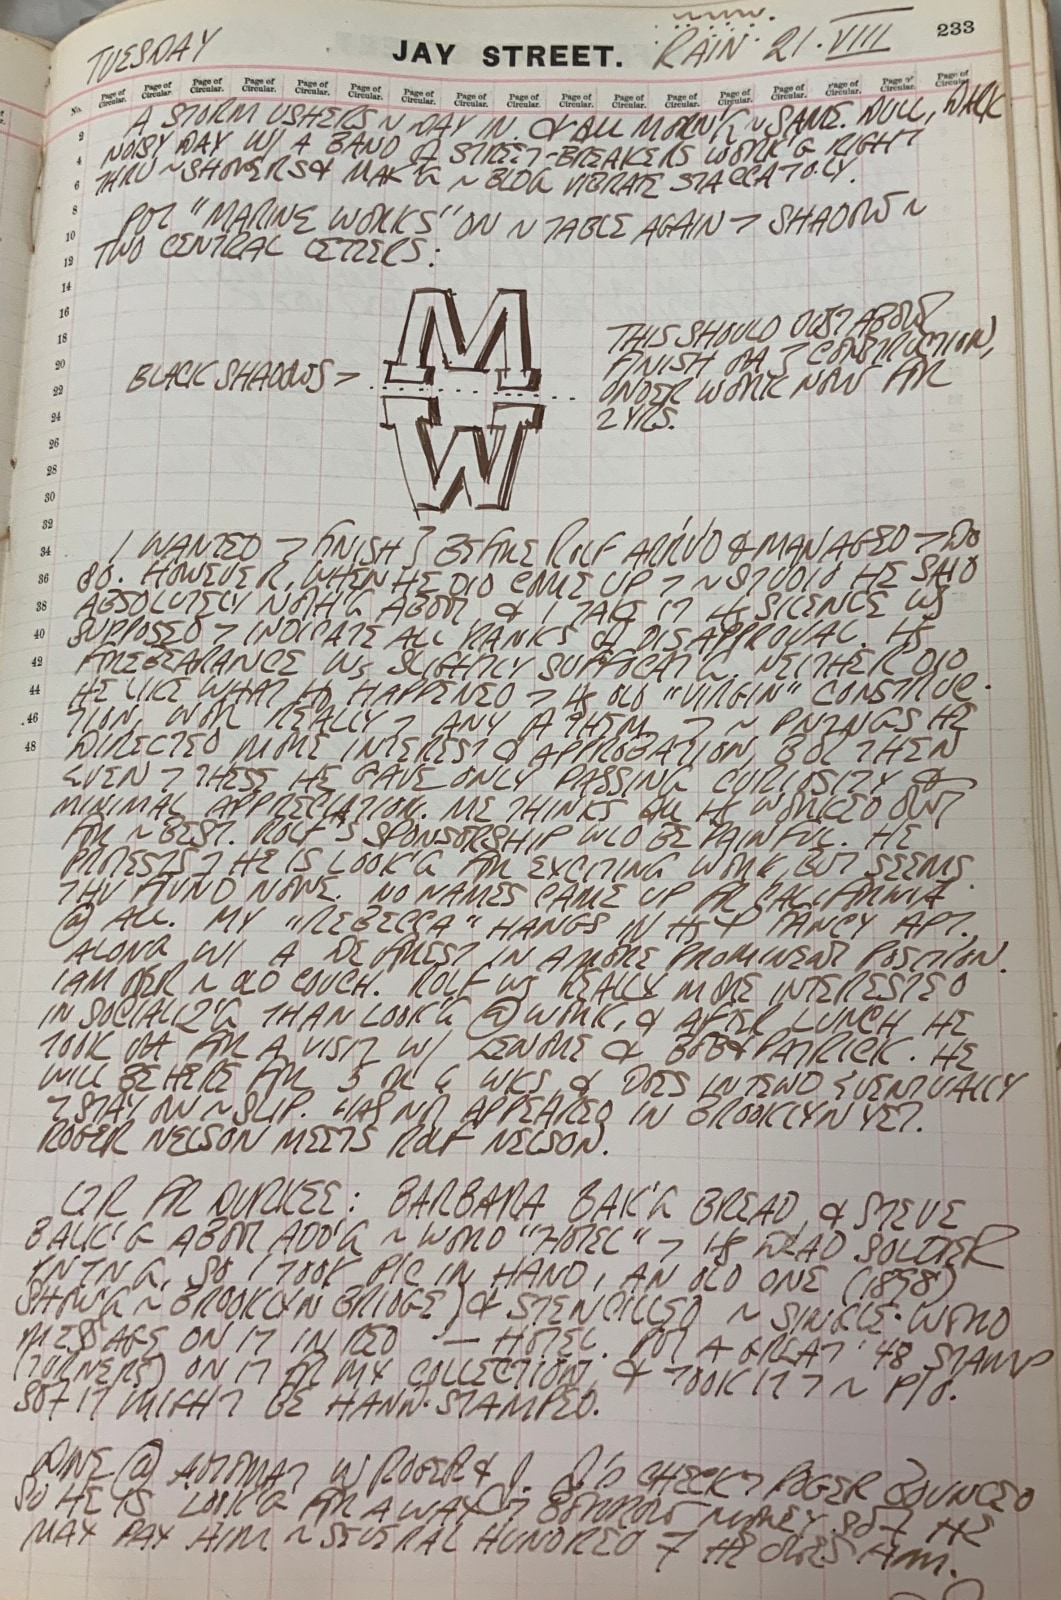 TUESDAY
JAY STREET.
RAIN 21·VIII
233
No. Page of Circular. Page of Circular. Page of Circular. Page of Circular. Page of Circular. Page of Circular. Page of Circular. Page of Circular. Page of Circular. Page of Circular. Page of Circular. Page of Circular. Page of Circular. Page of Circular. Page of Circular. Page of Circular. Page of Circular.
A STORM USHERS ~ DAY IN. & ALL MORN'G ~ SAME. DULL, DARK
2 NOISY DAY W/ A BAND OF STREET-BREAKERS WORK'G RIGHT
4 THRU ~ SHOWERS & MAK'G ~ BLDG VIBRATE STACCATOLY.
6
8 PUT "MARINE WORKS" ON ~ TABLE AGAIN 7 SHADOW ~
10 TWO CENTRAL LETTERS:
12
14
16
18
20
22
24
26
28
30
32
MW
BLACK SHADOWS >
THIS SHOULD JUST ABOUT
FINISH CONSTRUCTION,
UNDER WORK NOW FOR
2 YRS.
I WANTED 7 FINISH BEFORE ROLF ARRIVD & MANAGED 7 DO
34 SO. HOWEVER, WHEN HE DID COME UP 7 ~ STUDIO HE SAID
36 ABSOLUTELY NOTH'G ABOUT & I TAKE IT HS SILENCE WS
38 SUPPOSED 7 INDICATE ALL RANKS OF DISAPPROVAL. HS
40 FOREBEARANCE WS SLIGHTLY SUFFOCAT'G. NEITHER DID
42 HE LIKE WHAT HS HAPPENED 7 HS OLD "VIRGIN" CONSTRUC-
44 TION, NOR REALLY 7 ANY OF THEM. 7 ~ PNTNGS HE
46 DIRECTED MORE INTEREST & APPROBATION, BUT THEN
48 EVEN 7 THESE HE GAVE ONLY PASSING CURIOSITY &
MINIMAL APPRECIATION. ME THINKS ALL HS WORKED OUT
FOR ~ BEST. ROLF'S SPONSORSHIP WLD BE PAINFUL. HE
PROTESTS 7 HE IS LOOK'G FOR EXCITING WORK, BUT SEEMS
FOUND NONE. NO NAMES CAME UP FR CALIFORNIA
@ ALL. MY "REBECCA" HANGS IN HS FANCY APT.,
ALONG W/ A DE FOREST IN A MORE PROMINENT POSITION.
I AM OVER ~ OLD COUCH. ROLF WS REALLY MORE INTERESTED
IN SOCIALIZ'G THAN LOOK'G @ WORK, & AFTER LUNCH HE
TOOK OFF FOR A VISIT W/ LENORE & BOB & PATRICK. HE
WILL BE HERE FOR 5 OR 6 WKS & DOES INTEND EVENTUALLY
7 STAY ON ~ SLIP. HAS NOT APPEARED IN BROOKLYN YET.
ROGER NELSON MEETS ROLF NELSON.
LTR FR DURKEE: BARBARA BAK'G BREAD, & STEVE
BALK'G ABOUT ADD'G ~ WORD "HOTEL" 7 HS DEAD SOLDIER
PNTNG, SO I TOOK PIC IN HAND, AN OLD ONE (1898)
SHOW'G ~ BROOKLYN BRIDGE, & STENCILLED ~ SINGLE-WORD
MESSAGE ON IT IN RED — HOTEL. PUT A GREAT '48 STAMP
(TURNERS) ON IT FR MY COLLECTION, & TOOK IT 7 ~ P/O.
SO IT MIGHT BE HAND-STAMPED.
DINE @ AUTOMAT W ROGER & CHECK ROGER BOUNCED
SO HE IS LOOK'G FOR A WAY 7 BORROW MONEY SO HE
MAY PAY HIM ~ SEVERAL HUNDRED 7 HE OWES HIM.